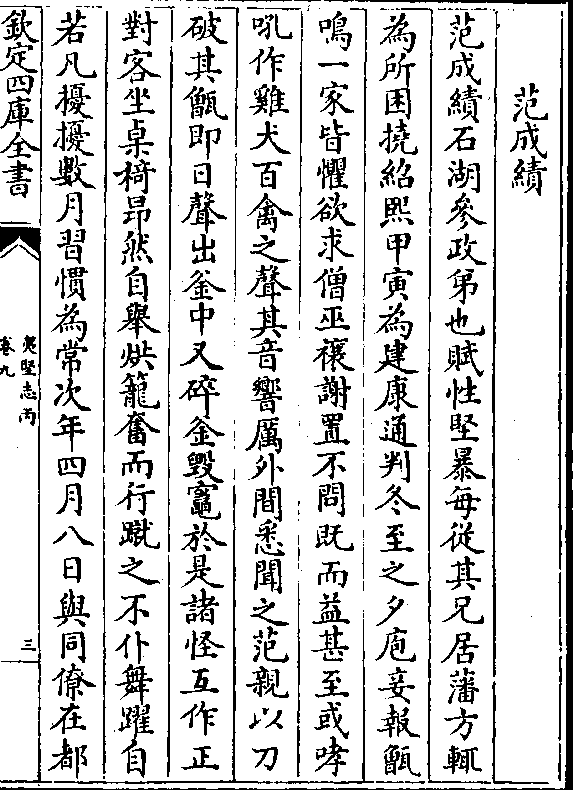 范成績
范成績石湖參政弟也賦性堅暴每從其兄居藩方輒
為所困撓紹熙甲寅為建康通判冬至之夕庖妾報甑
鳴一家皆懼欲求僧巫禳謝置不問既而益甚至或哮
吼作雞犬百禽之聲其音響厲外間悉聞之范親以刀
破其甑即日聲出釜中又碎釜毀竈於是諸怪互作正
對客坐桌椅昂然自舉烘籠奮而行蹴之不仆舞躍自
若凡擾擾數月習慣為常次年四月八日與同僚在都
欽定四庫全書
夷堅志丙
卷九
三